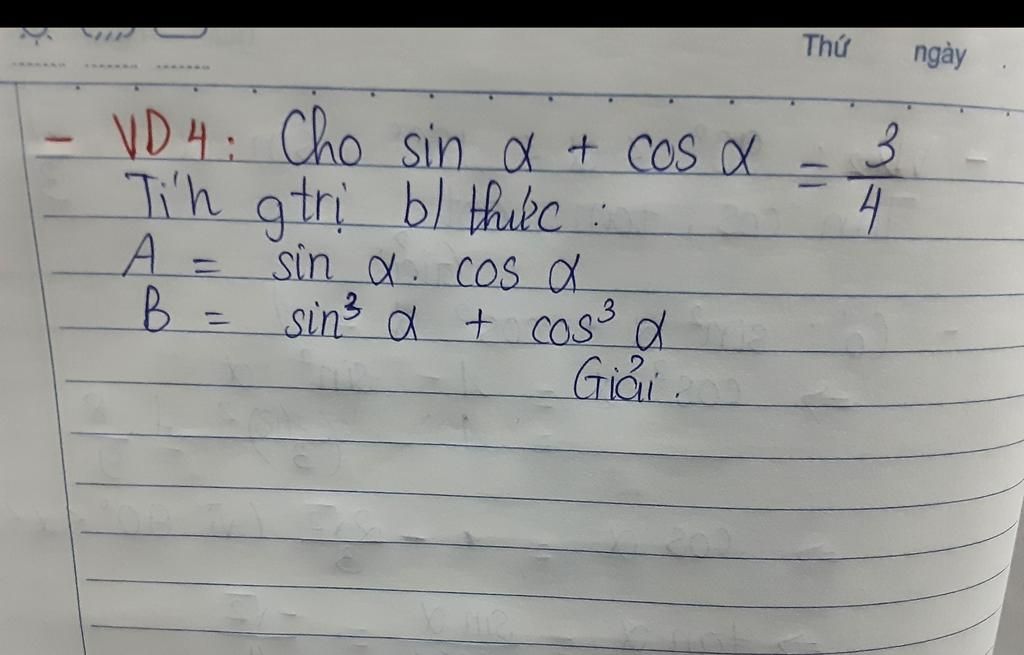 Thứ ngày
- VD4: Cho sin α + cos α = 3/4
Tính gtrị b/ thức:
A = sin α. cos α
B = sin³ α + cos³ α
Giải.